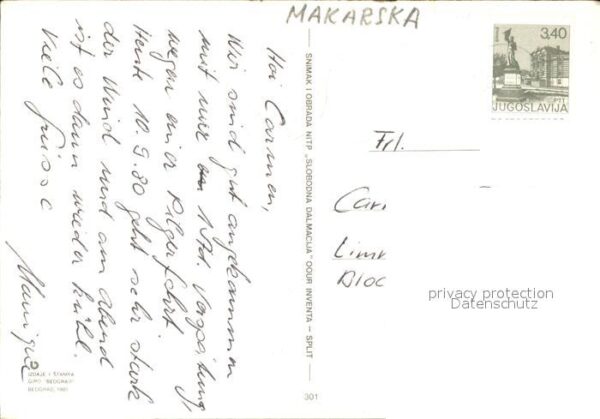 MAKARSKA
Hoi Carmen,
Wir sind gut angekommen
mit nur 1 Std. Verspätung,
wegen einer Pilgerfahrt.
Heute 10.9.80 geht sehr stark
der Wind und am Abend
ist es dann wieder kühl.
Viele Grüsse
Monique
SNIMAK I OBRADA NITP „SLOBODNA DALMACIJA" OOUR INVENTA – SPLIT
301
IZDAJE I ŠTAMPA
GIRO "BEOGRAD"
BEOGRAD, 1981
3,40
JUGOSLAVIJA
Frl.
Car
Limm
Bloc
privacy protection
Datenschutz